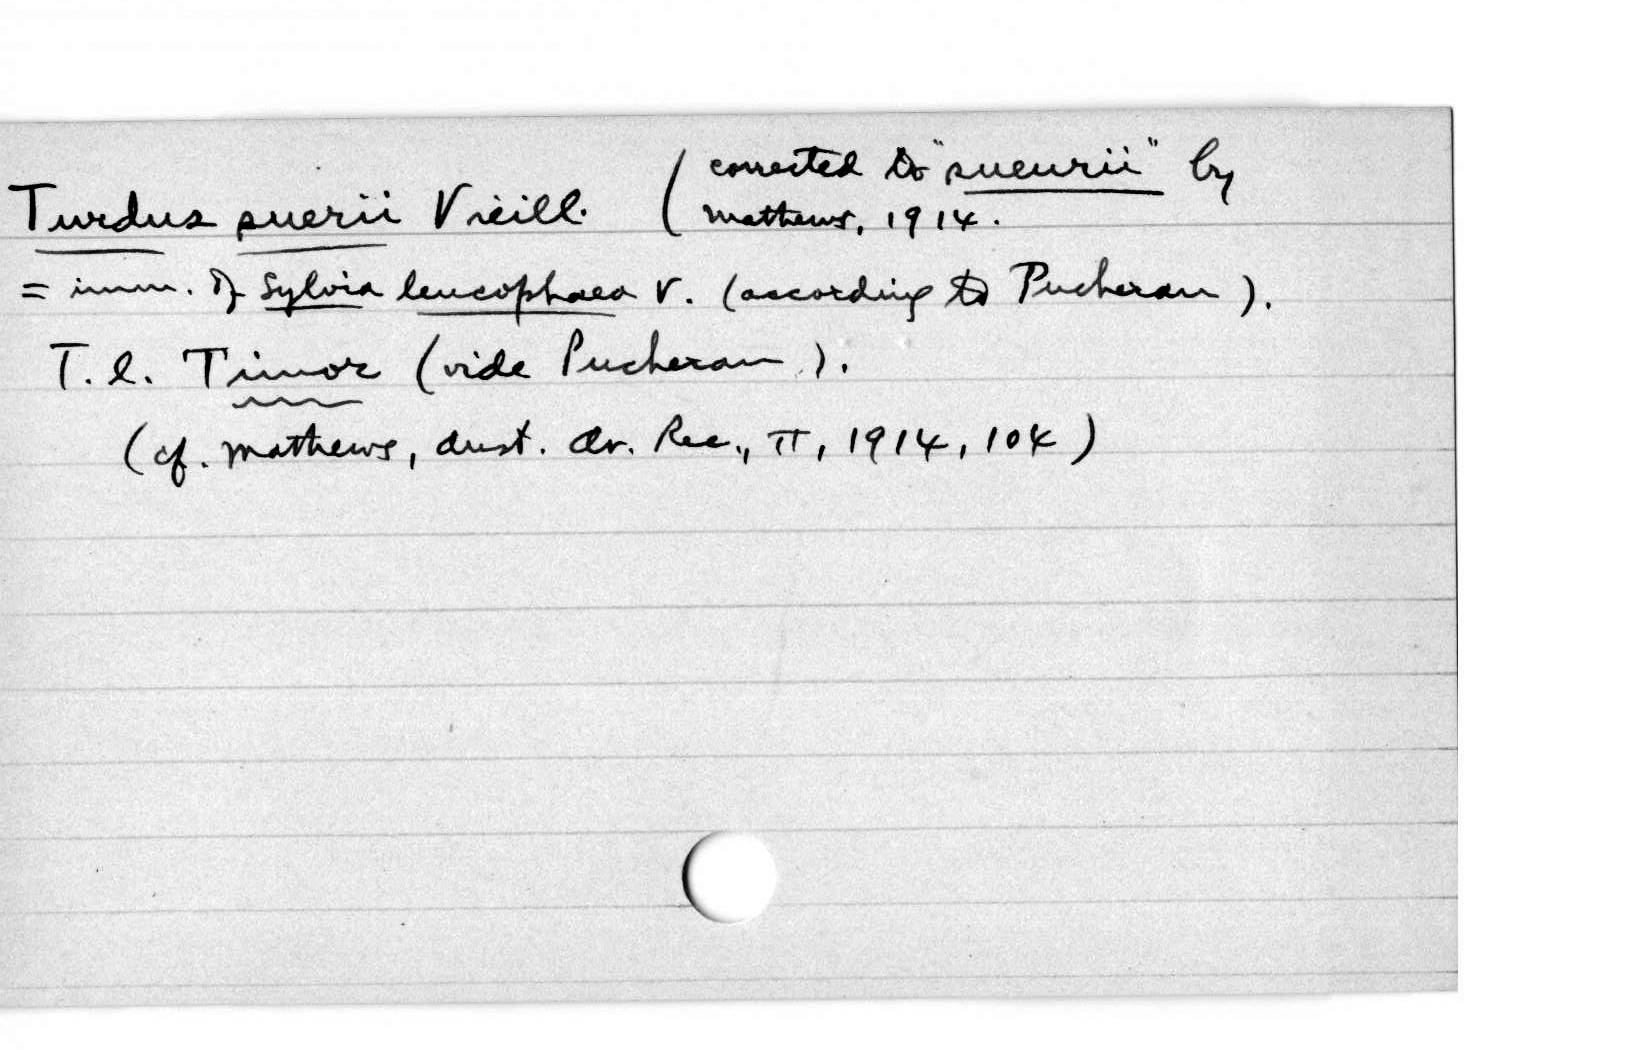 Turdus suerii Vieill. (corrected to "sueurii" by
Mathews, 1914.
= imm. of Sylvia leucophaea V. (according to Pucheran).
T. l. Timor (vide Pucheran).
(cf. Mathews, Aust. Av. Rec., II, 1914, 104)